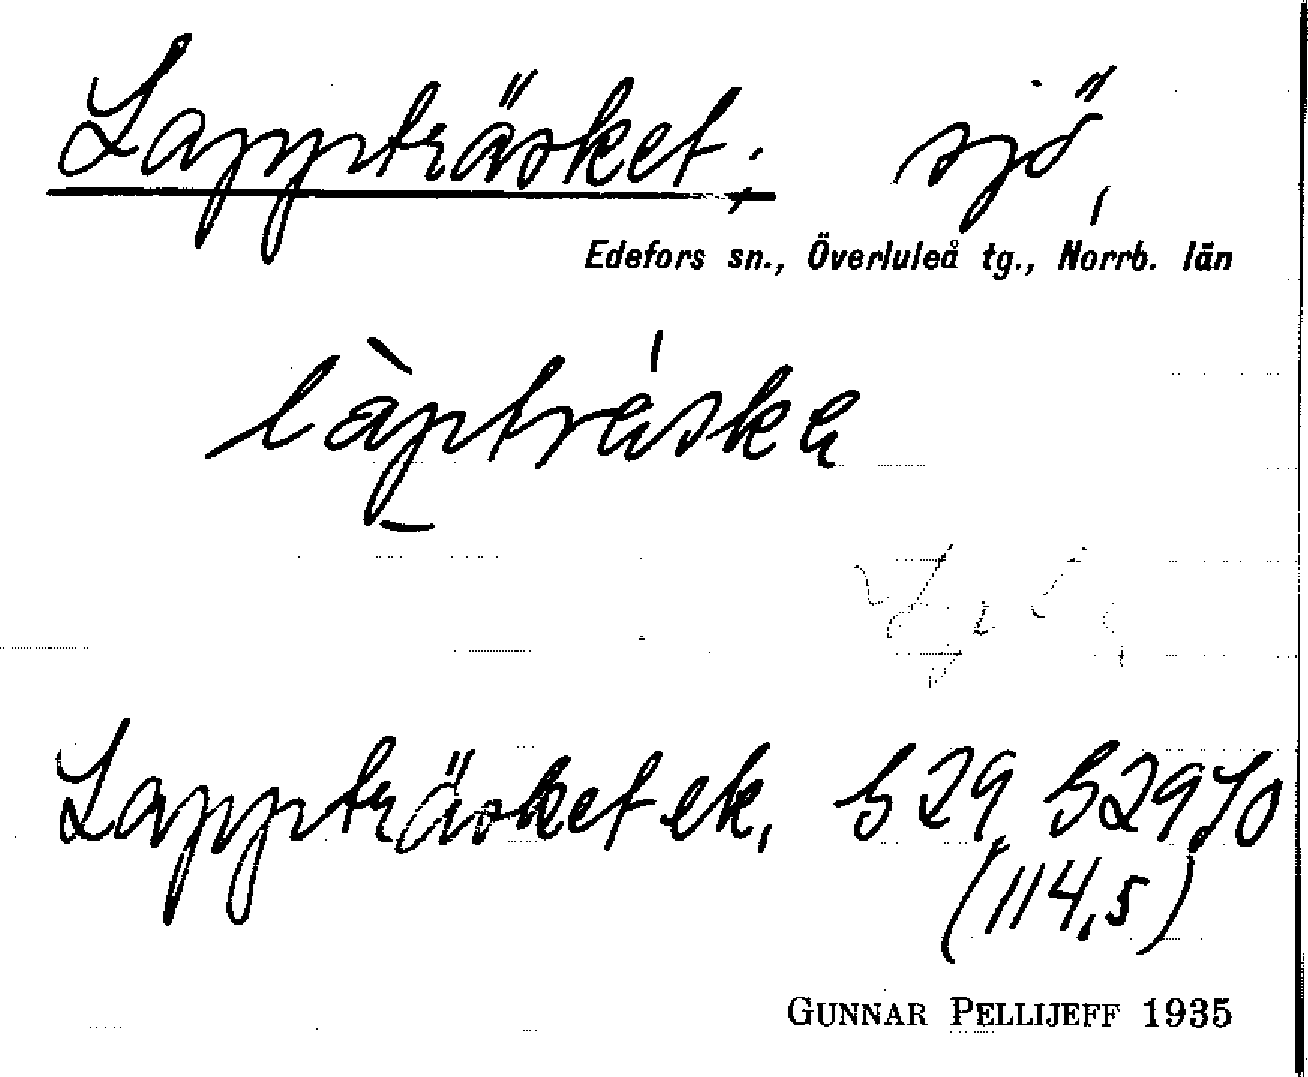 Lappträsket; sjö,
Edefors sn., Överluleå tg., Norrb. län
làptrǽska
Lappträsket ek, b29, b29Jo
(114,5)
GUNNAR PELLIJEFF 1935